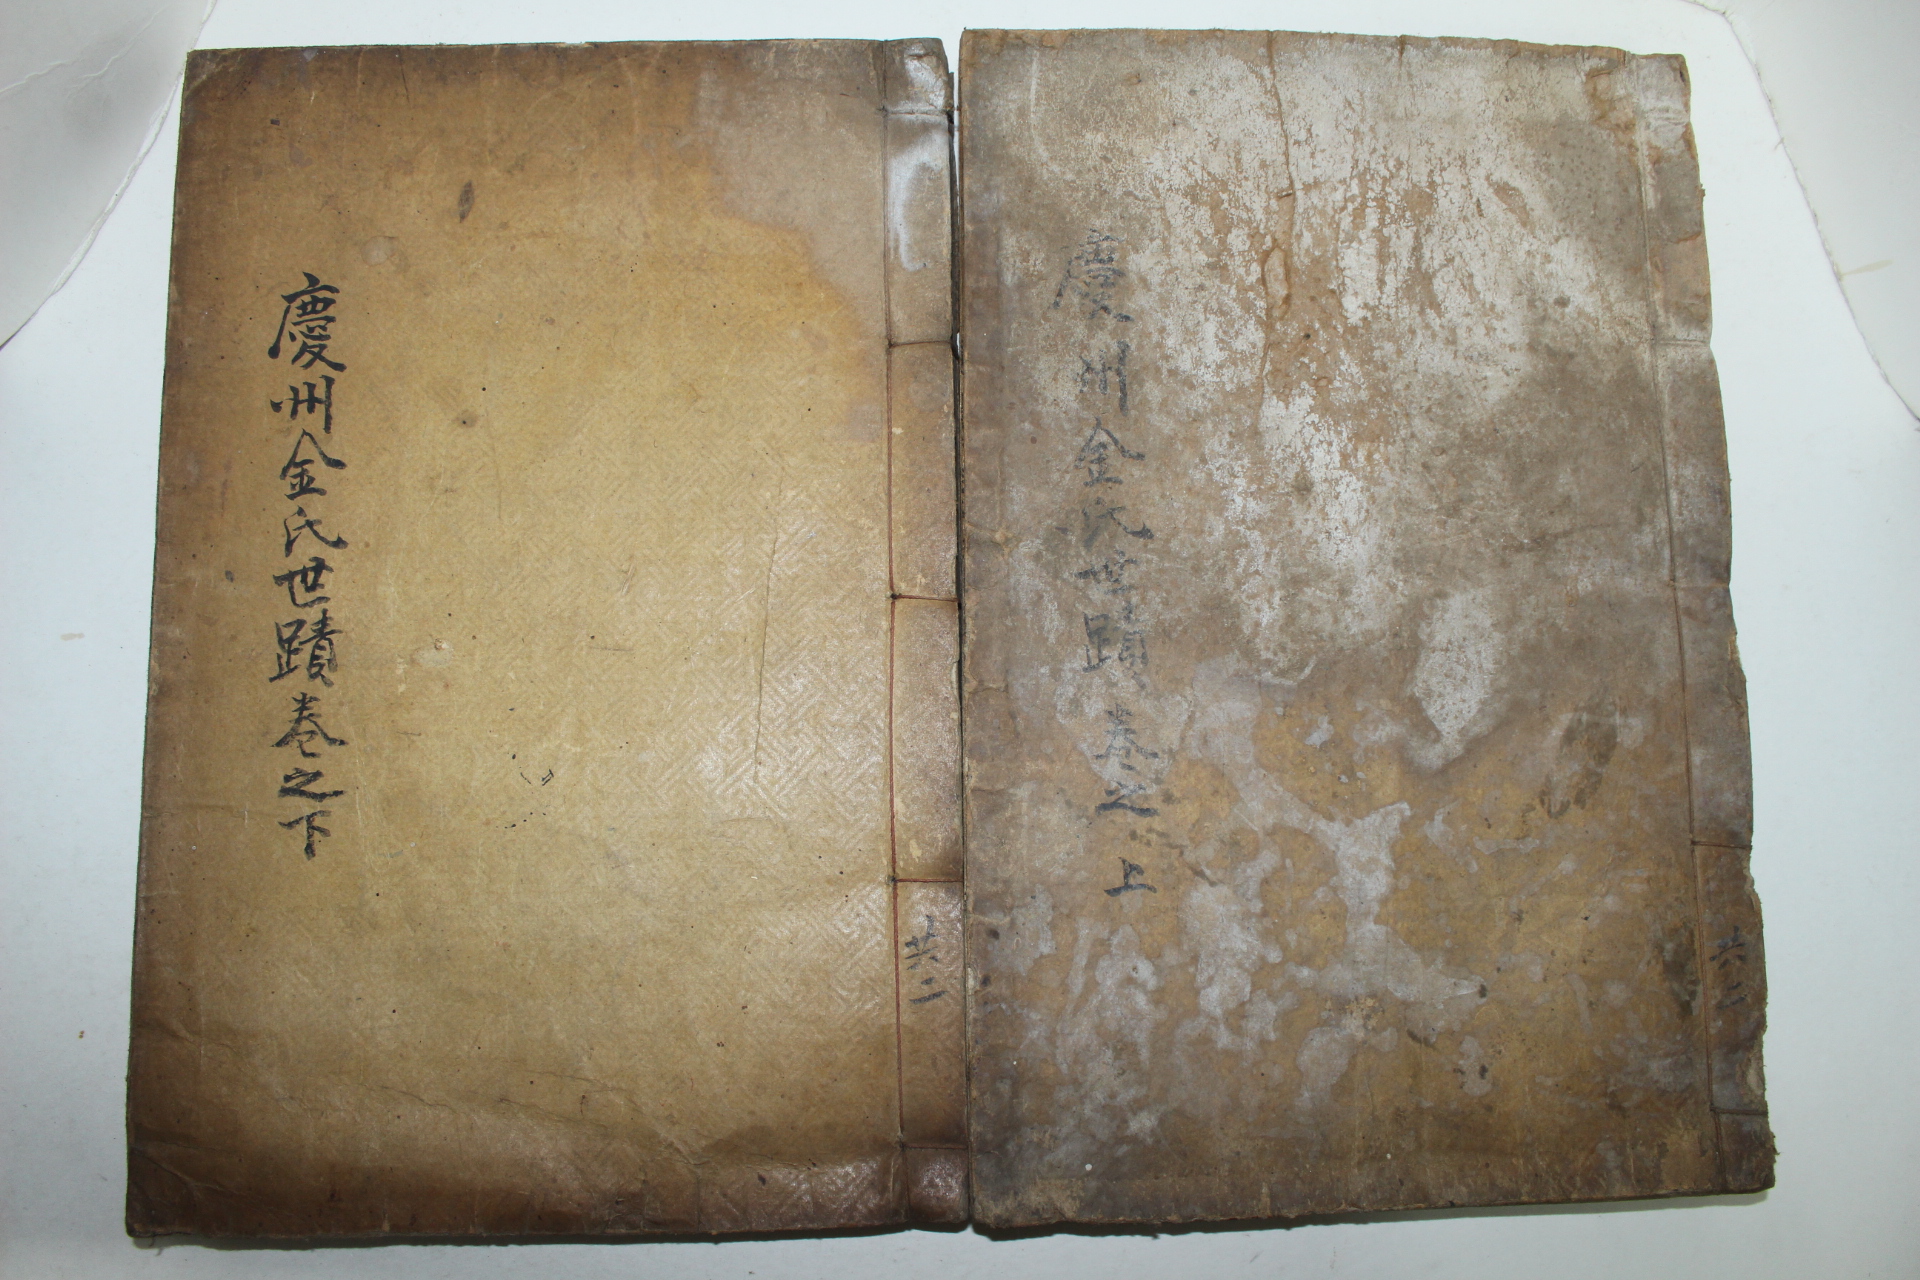 慶州金氏世蹟卷之上
共二
慶州金氏世蹟卷之下
共二